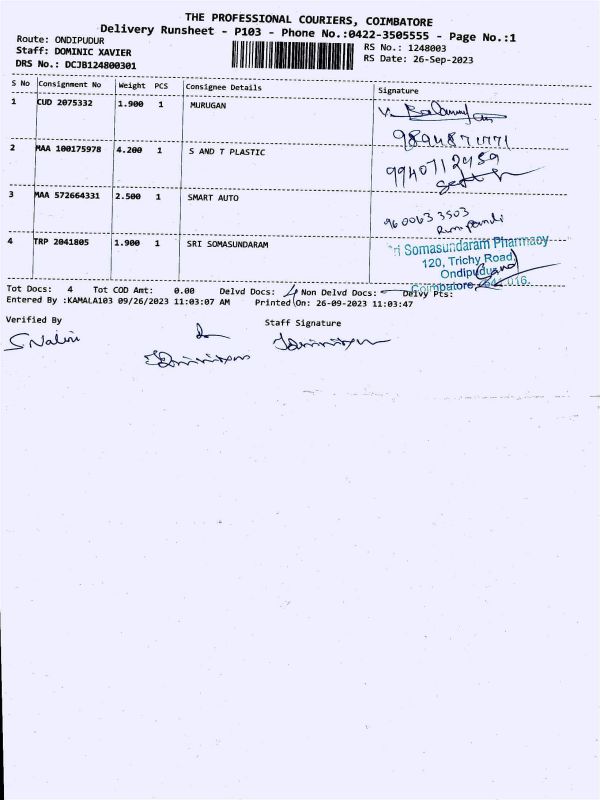 THE PROFESSIONAL COURIERS, COIMBATORE
Delivery Runsheet - P103 - Phone No.:0422-3505555 - Page No.:1
Route: ONDIPUDUR
Staff: DOMINIC XAVIER
DRS No.: DCJB124800301
RS No.: 1248003
RS Date: 26-Sep-2023
S No Consignment No Weight PCS Consignee Details Signature
1 CUD 2075332 1.900 1 MURUGAN
9894871771
2 MAA 100175978 4.200 1 S AND T PLASTIC
9940712459
3 MAA 572664331 2.500 1 SMART AUTO
9600633503
4 TRP 2041805 1.900 1 SRI SOMASUNDARAM
ri Somasundaram Pharmacy
120, Trichy Road,
Ondipudur
Coimbatore, 641 016.
Tot Docs: 4 Tot COD Amt: 0.00 Delvd Docs: 4 Non Delvd Docs: Delvy Pts:
Entered By :KAMALA103 09/26/2023 11:03:07 AM Printed On: 26-09-2023 11:03:47
Verified By Staff Signature
S Nalini